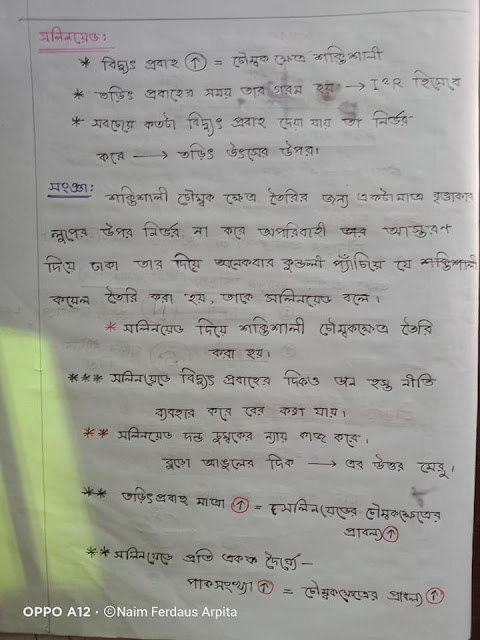 সলিনয়েড:
* বিদ্যুৎ প্রবাহ ↑ = চৌম্বকক্ষেত্র শক্তিশালী
* তড়িৎ প্রবাহের সময় তার গরম হয় → I²R হিসেবে
* সবচেয়ে কতটা বিদ্যুৎ প্রবাহ দেয়া যায় তা নির্ভর
করে → তড়িৎ উৎসের উপর।
সংজ্ঞা: শক্তিশালী চৌম্বক ক্ষেত্র তৈরির জন্য একটামাত্র বৃত্তাকার
লুপের উপর নির্ভর না করে অপরিবাহী আস্তরণ
দিয়ে ঢাকা তার দিয়ে অনেকবার কুন্ডলী প্যাঁচিয়ে যে শক্তিশালী
কয়েল তৈরি করা হয়, তাকে সলিনয়েড বলে।
* সলিনয়েড দিয়ে শক্তিশালী চৌম্বকক্ষেত্র তৈরি
করা হয়।
*** সলিনয়েডে বিদ্যুৎ প্রবাহের দিকও ডান হস্ত নীতি
ব্যবহার করে বের করা যায়।
** সলিনয়েড দন্ড চুম্বকের ন্যায় কাজ করে।
বুড়ো আঙুলের দিক → এর উত্তর মেরু।
** তড়িৎপ্রবাহ মাত্রা ↑ = সলিনয়েডের চৌম্বকক্ষেত্রের
প্রাবল্য ↑
** সলিনয়েডে প্রতি একক দৈর্ঘ্যে -
পাকসংখ্যা ↑ = চৌম্বকক্ষেত্রের প্রাবল্য ↑
OPPO A12 · ©Naim Ferdaus Arpita